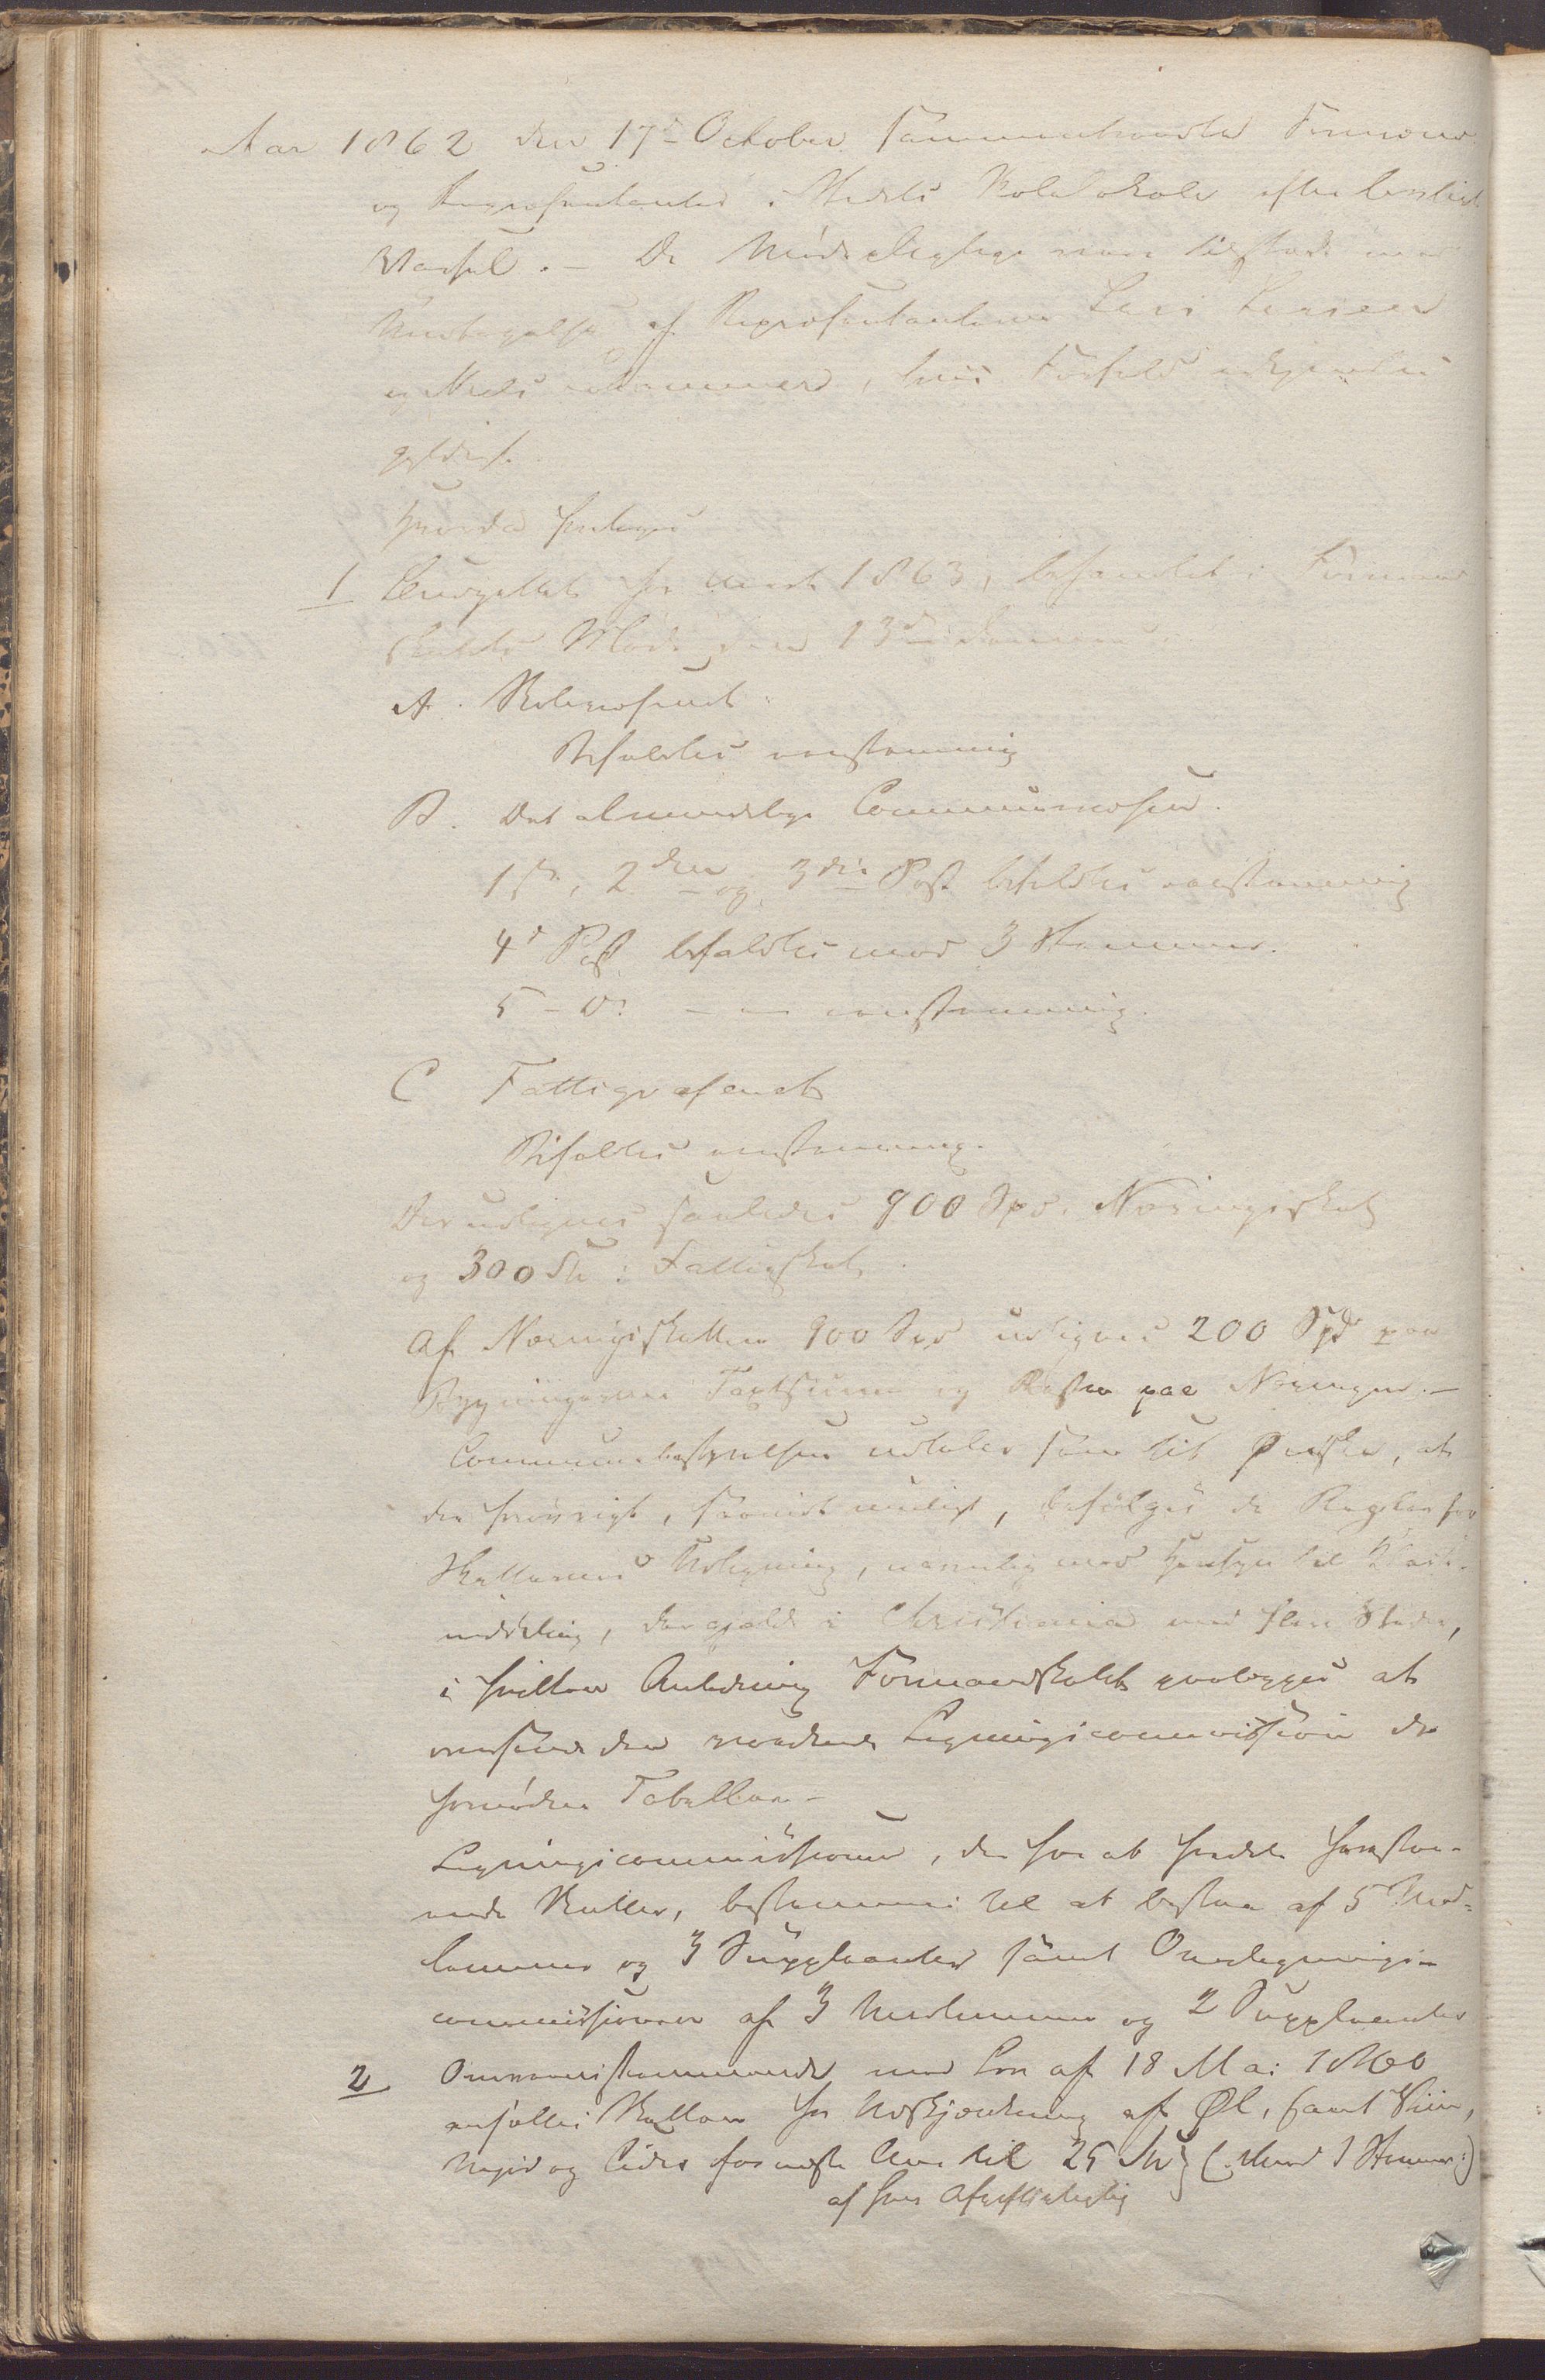 Aar 1862 den 17de October sammentraadte Formænd
og Repræsentanter i Stedets Skolelokale efter lovligt
Varsel. – De Mødepligtige vare tilstede med
Undtagelse af Repræsentanterne Lars Larsen
og Niels Hammer, hvis Forfald ansaaes
gyldigt.
Hvorda foretoges
1 Budgettet for Aaret 1863, behandlet i Formand
skabets Møde den 13de dennes
A. Skolevæsenet:
Bifaldtes eenstemmig
B. Det almindelige Communevæsen.
1ste, 2den og 3die Post bifaldtes eenstemmig
4d Post bifaldtes mod 3 Stemmer.
5 – D: – – eenstemmig.
C Fattigvæsenet
Bifaldtes eenstemmig.
Der udlignes saaledes 900 Spd. Næringsskat
og 300 Spd: Fattigskat.
Af Næringsskatten 900 Spd udlignes 200 Spd paa
Bygningernes Taxtsum og Resten paa Næringen. –
Communebestyrelsen udtaler som sit Ønske, at
der forøvrigt, saavidt muligt, befølges de Regler for
Skatternes Udligning, navnlig med Hensyn til Klasse-
inddeling, der gjælde i Christiania med flere Steder,
i hvilken Anledning Formandskabet paalægges at
oversende den vordende Ligningscommission de
fornødne Tabeller –
Ligningscommissionen, der for at fordele foranstaa-
ende Skatter, bestemmes til at bestaa af 5 Med=
lemmer og 3 Suppleanter samt Overlignings=
commissionen af 3 Medlemmer og 2 Suppleanter
2 Overeensstemmende med Lov af 18 Mai 1860
ansattes Skatten for Udskjænkning af Øl, samt Viin,
Mjød og Cider for næste Aar til 25 Spd (: Mod 1 Stemme:)
af hver Afgiftspligtig